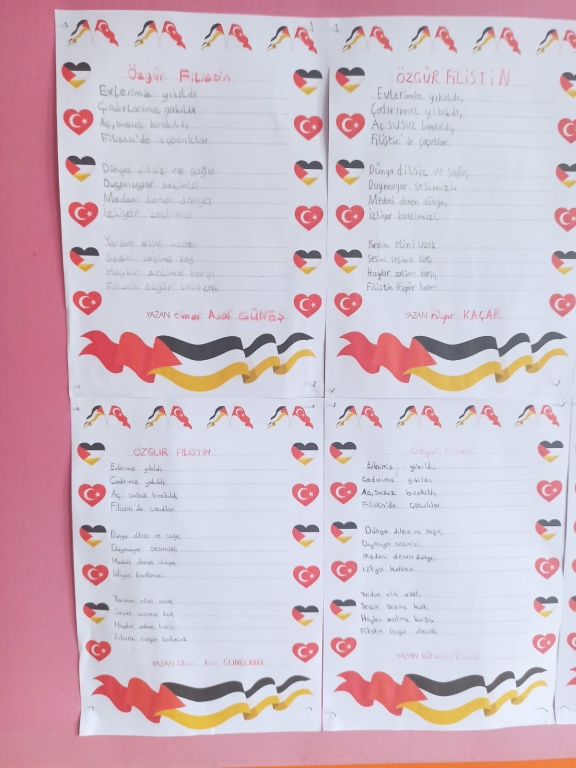 Özgür Filistin
Evlerimiz yıkıldı
Çadırlarımız yakıldı
Aç, susuz bırakıldı
Filistin'de çocuklar
Dünya dilsiz ve sağır
Duymuyor sesimizi
Medeni denen dünya
İzliyor
Yardım elini uzat
Sesini sesime kat
Haykır zalime karşı
Filistin özgür
YAZAN Ömer Asaf GÜNEŞ
ÖZGÜR FİLİSTİN
Evlerimiz yıkıldı,
Çadırımız yıkıldı,
Aç susuz bırakıldı,
Filistin'de
Dünya dilsiz ve sağır,
Duymuyor sesimizi
Medeni denen dünya,
izliyor
Yardım elini uzat
Sesini sesime kat,
Haykır zalime karşı,
Filistin özgür
YAZAN KAÇAR
ÖZGÜR FİLİSTİN
Evlerimiz yıkıldı,
Çadırımız yakıldı
Aç, susuz bırakıldı,
Filistin'de
Dünya dilsiz ve sağır,
Duymuyor sesimizi
Medeni denen dünya
İzliyor
Yardım elini uzat,
Sesini sesime kat,
Haykır zalime karşı,
Filistin özgür
YAZAN
Özgür
Evlerimiz yıkıldı,
Çadırımız yıkıldı,
Aç, susuz bırakıldı,
Filistin'de
Dünya dilsiz ve sağır,
Duymuyor sesimizi
Medeni denen dünya,
izliyor
Yardım elini uzat,
Sesini sesime kat,
Haykır zalime karşı
Filistin özgür
YAZAN